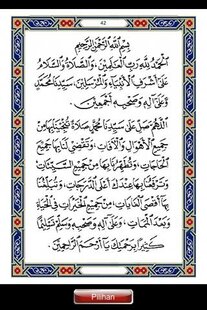 42
بِسْمِ اللهِ الرَّحْمٰنِ الرَّحِيْمِ
اَلْحَمْدُ لِلّٰهِ رَبِّ الْعَالَمِيْنَ، وَالصَّلَاةُ وَالسَّلَامُ
عَلَىٰ اَشْرَفِ الْاَنْبِيَاءِ وَالْمُرْسَلِيْنَ سَيِّدِنَا مُحَمَّدٍ
وَعَلَىٰ اٰلِهِ وَصَحْبِهِ اَجْمَعِيْنَ.
اَللّٰهُمَّ صَلِّ عَلَىٰ سَيِّدِنَا مُحَمَّدٍ صَلَاةً تُنْجِيْنَا بِهَا مِنْ
جَمِيْعِ الْاَهْوَالِ وَالْاٰفَاتِ، وَتَقْضِيْ لَنَا بِهَا جَمِيْعَ
الْحَاجَاتِ، وَتُطَهِّرُنَا بِهَا مِنْ جَمِيْعِ السَّيِّئَاتِ
وَتَرْفَعُنَا بِهَا عِنْدَكَ اَعْلَى الدَّرَجَاتِ، وَتُبَلِّغُنَا
بِهَا اَقْصَى الْغَايَاتِ، مِنْ جَمِيْعِ الْخَيْرَاتِ فِي الْحَيَاةِ
وَبَعْدَ الْمَمَاتِ، وَعَلَىٰ اٰلِهِ وَصَحْبِهِ وَسَلِّمْ تَسْلِيْمًا
كَثِيْرًا بِرَحْمَتِكَ يَا اَرْحَمَ الرَّاحِمِيْنَ.
Pilihan